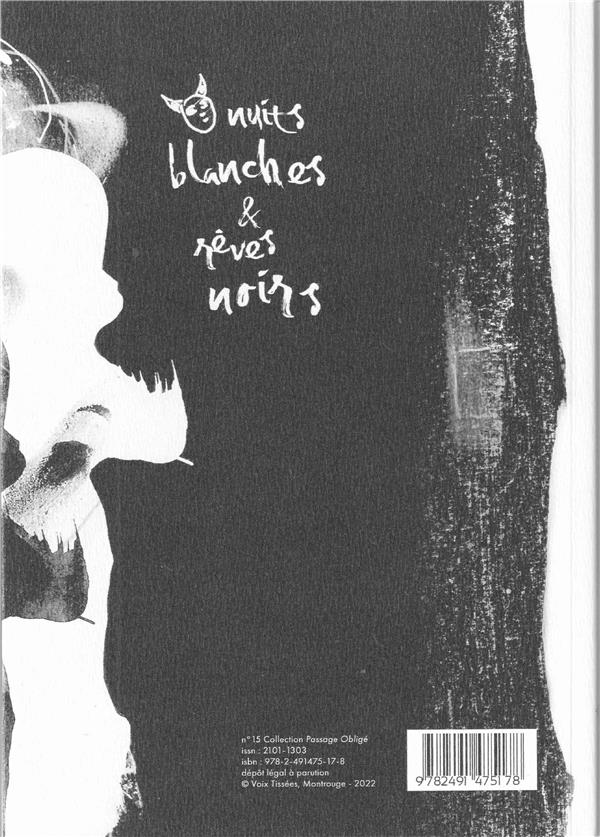 nuits
blanches
&
rêves
noirs
n°15 Collection Passage Obligé
issn : 2101-1303
isbn : 978-2-491475-17-8
dépôt légal à parution
© Voix Tissées, Montrouge - 2022
9 782491 475178